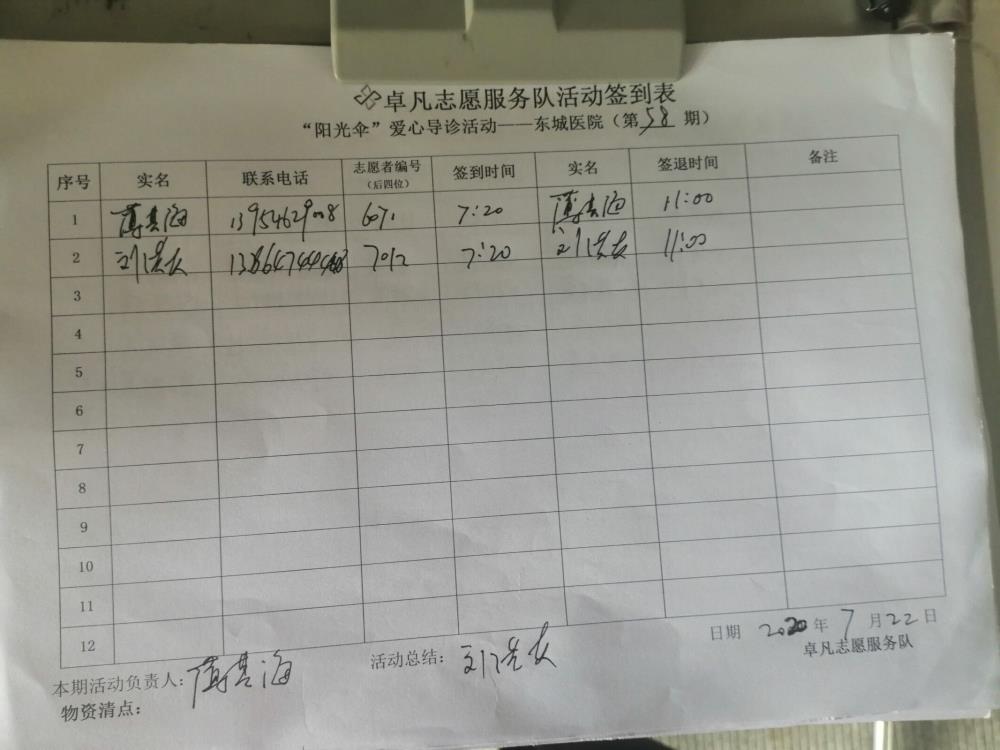 卓凡志愿服务队活动签到表
“阳光伞”爱心导诊活动——东城医院（第58期）
序号 实名 联系电话 志愿者编号（后四位） 签到时间 实名 签退时间 备注
1 薄其海 6071 7:20 薄其海 11:00
2 刘洪友 7012 7:20 刘洪友 11:00
3
4
5
6
7
8
9
10
11
12
日期 2020年7月22日
卓凡志愿服务队
本期活动负责人：薄其海 活动总结：刘洪友
物资清点：